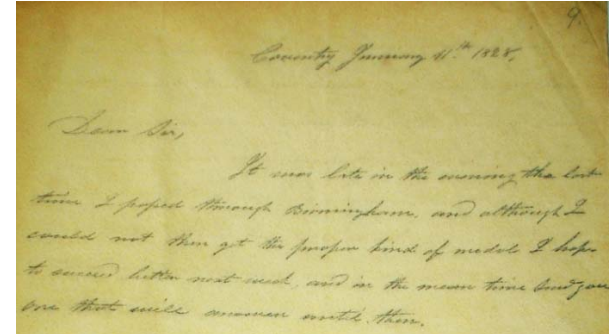 9.
Coventry January 11th 1828,
Dear Sir,
It was late in the evening the last
time I passed through Birmingham, and although I
could not then get the proper kind of medal I hope
to succeed better next week, and in the mean time send you
one that will answer until then.